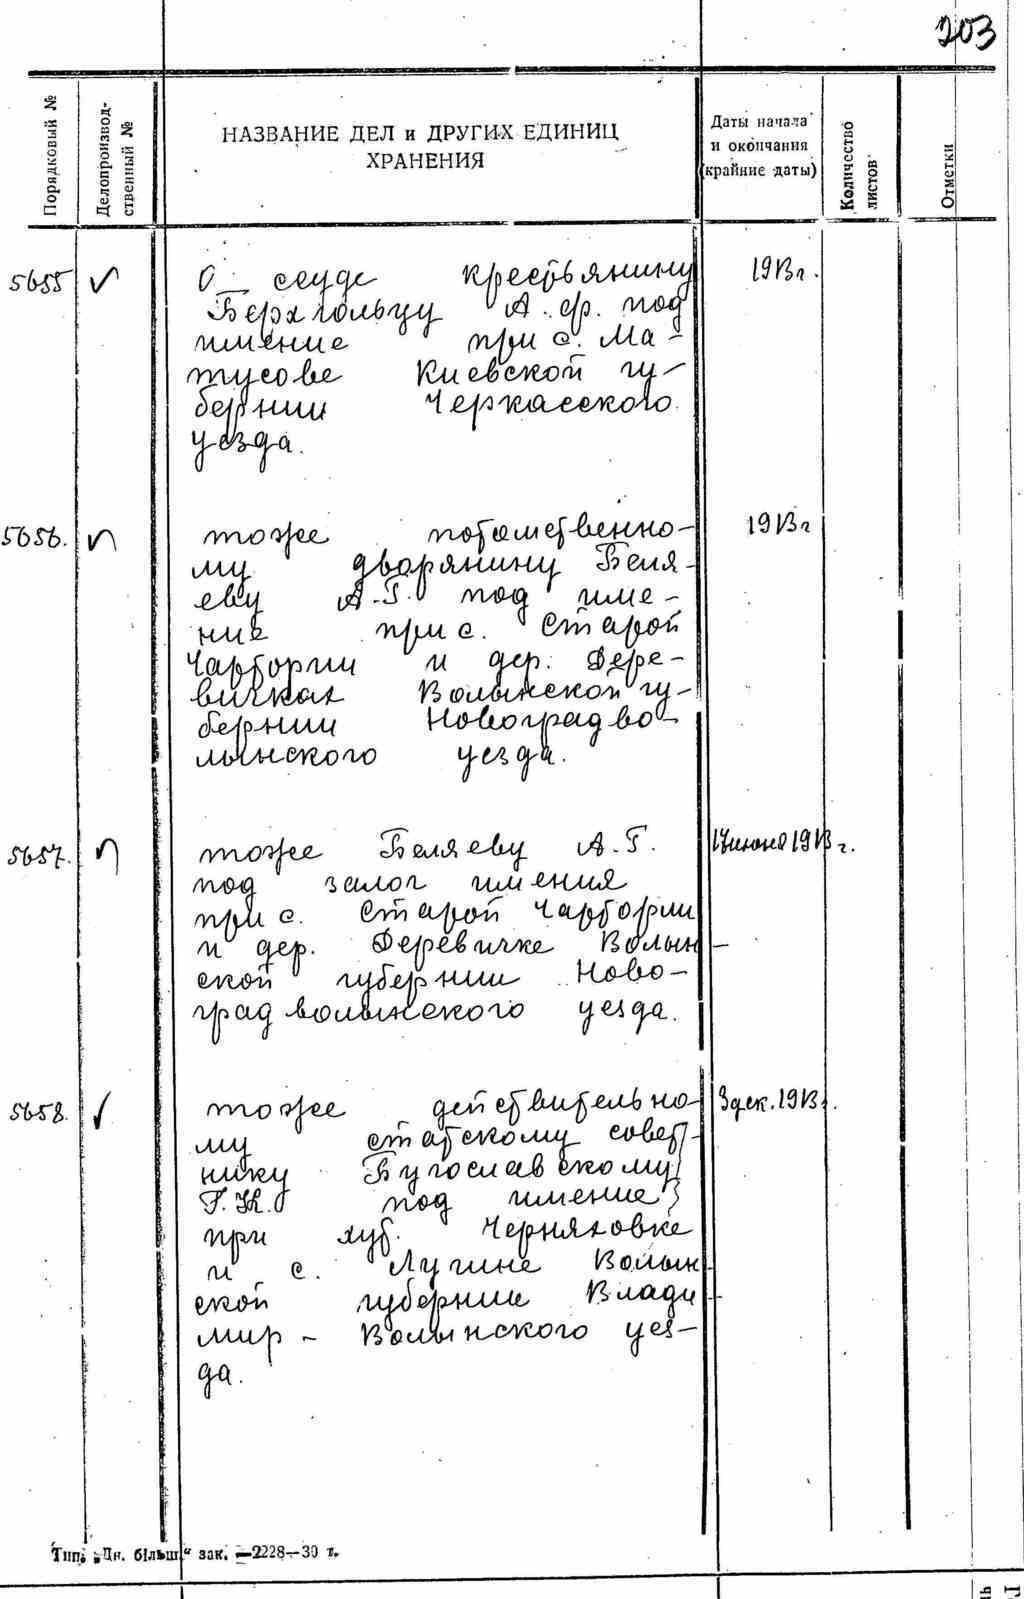 203
Порядковый №
Делопроизвод-
ственный №
НАЗВАНИЕ ДЕЛ и ДРУГИХ ЕДИНИЦ
ХРАНЕНИЯ
Даты начала
и окончания
(крайние даты)
Количество
листов
Отметки
5655 О ссуде крестьянину 1913г.
Берхгольцу А. Ф. под
имение при с. Ма-
тусове Киевской гу-
бернии Черкасского
уезда.
5656. тоже потомственно- 1913г
му дворянину Беля-
еву А.Г. под име-
ние при с. Старой
Чартории и дер. Дере-
вичках Волынской гу-
бернии Новоградво-
лынского уезда.
5657. тоже Беляеву А.Г. 17 июня 1913 г.
под залог имения
при с. Старой Чартории
и дер. Деревичке Волын-
ской губернии Ново-
градволынского уезда.
5658. тоже действительно- 3 дек. 1913г.
му статскому совет-
нику Бугославскому
Г.К. под имение
при хут. Черняховке
и с. Лугине Волын-
ской губернии Влади-
мир-Волынского уез-
да.
Тип. „Дн. більш.“ зак. —2228—30 т.